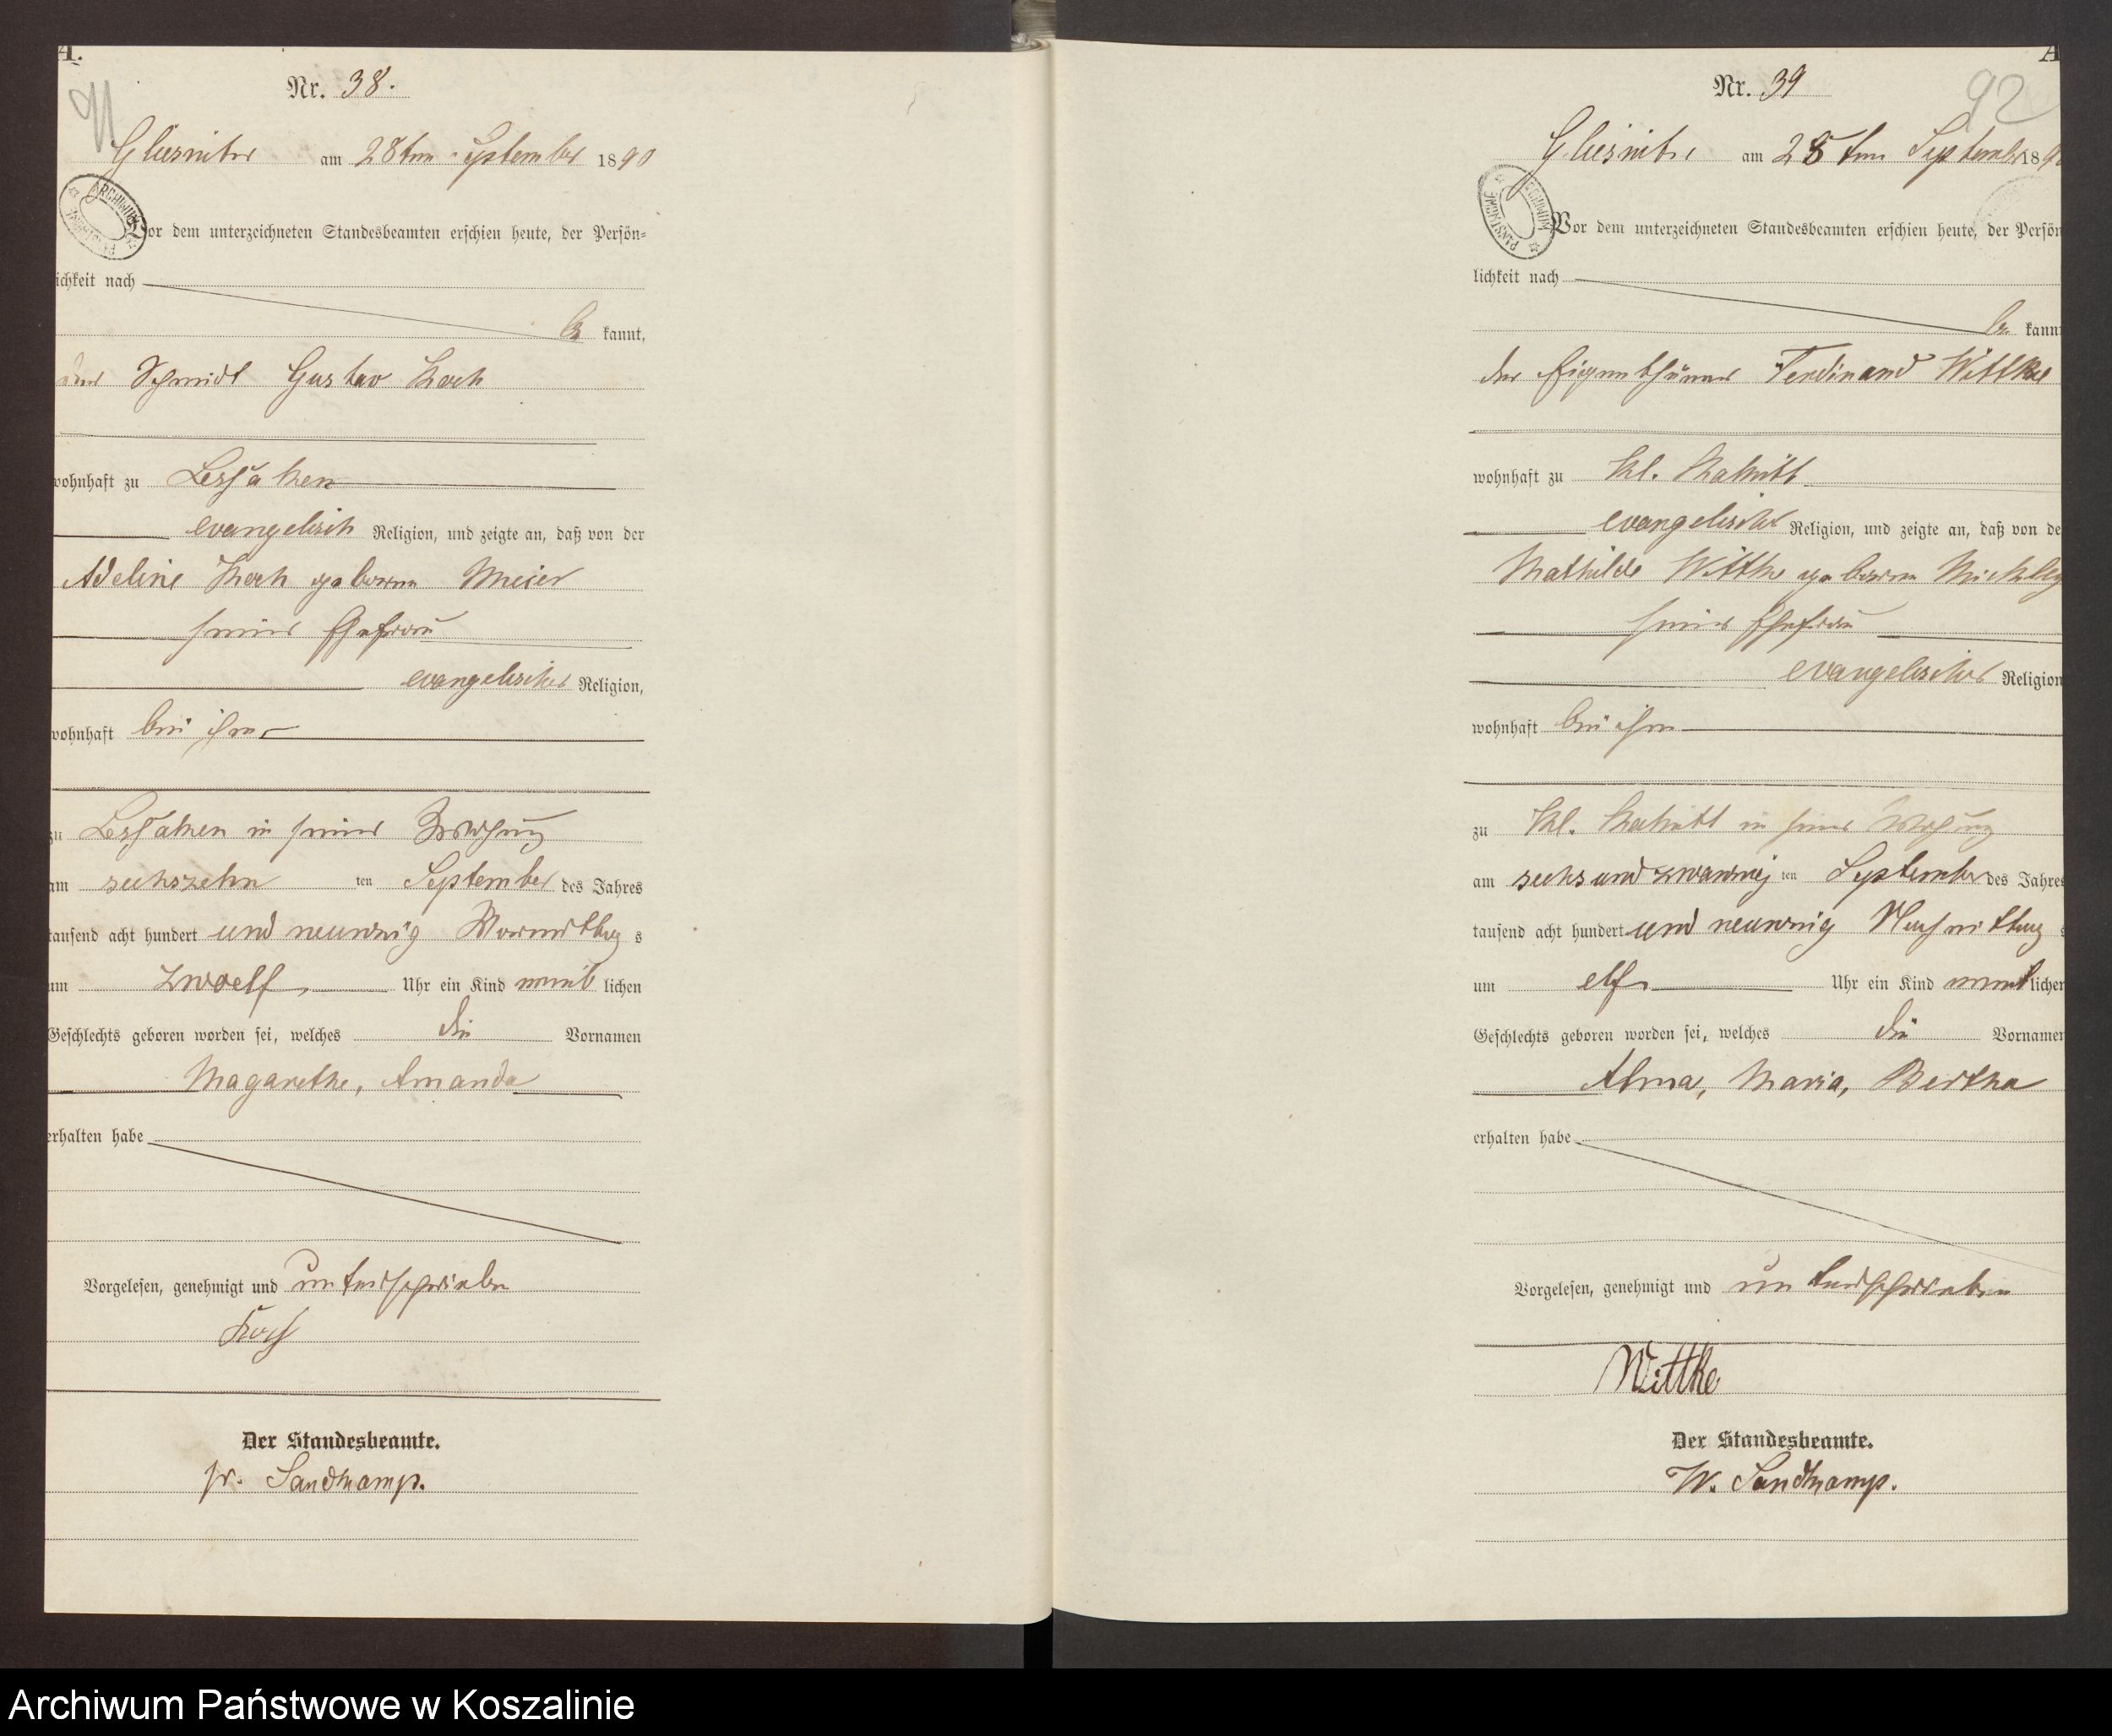 A.
91
Nr. 38.
Gliesnitz am 28ten September 1890
ARCHIWUM PAŃSTWOWE
Vor dem unterzeichneten Standesbeamten erschien heute, der Persön=
ichkeit nach
be kannt,
der Schmidt Gustav Koch
wohnhaft zu Lessaken
evangelisch Religion, und zeigte an, daß von der
Adeline Koch geboren Meier
seiner Ehefrau
evangelischer Religion,
wohnhaft bei ihm
zu Lessaken in seiner Wohnung
am sechszehn ten September des Jahres
tausend acht hundert und neunzig Vormittag s
um zwoelf Uhr ein Kind weib lichen
Geschlechts geboren worden sei, welches die Vornamen
Magarethe, Amanda
erhalten habe
Vorgelesen, genehmigt und unterschrieben
Koch
Der Standesbeamte.
Sandkamp.
A
92
Nr. 39
Gliesnitz am 28ten September 189
ARCHIWUM PAŃSTWOWE
Vor dem unterzeichneten Standesbeamten erschien heute, der Persön
lichkeit nach
be kannt
der Eigenthümer Ferdinand Wittke
wohnhaft zu Kl.
evangelischer Religion, und zeigte an, daß von de
Mathilde Wittke geboren
seiner Ehefrau
evangelischer Religion
wohnhaft bei ihm
zu Kl. in seiner Wohnung
am sechsundzwanzig ten September des Jahres
tausend acht hundert und neunzig Nachmittag s
um elf Uhr ein Kind weiblichen
Geschlechts geboren worden sei, welches die Vornamen
Alma, Maria, Bertha
erhalten habe
Vorgelesen, genehmigt und unterschrieben
Wittke
Der Standesbeamte.
W. Sandkamp.
Archiwum Państwowe w Koszalinie